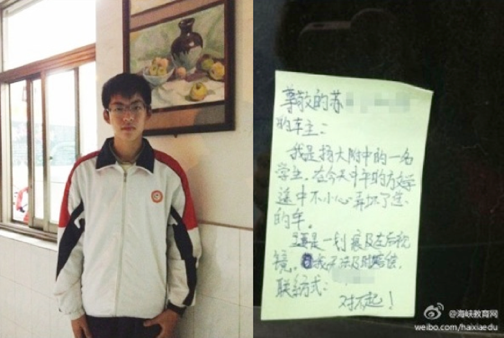 尊敬的苏
的车主:
我是扬大附中的一名
学生,在今天中午的放学
途中不小心弄坏了您
的车。
主要是一划痕及左后视
镜,我
联系方式:
对不起!
@海峡教育网
weibo.com/haixiaedu